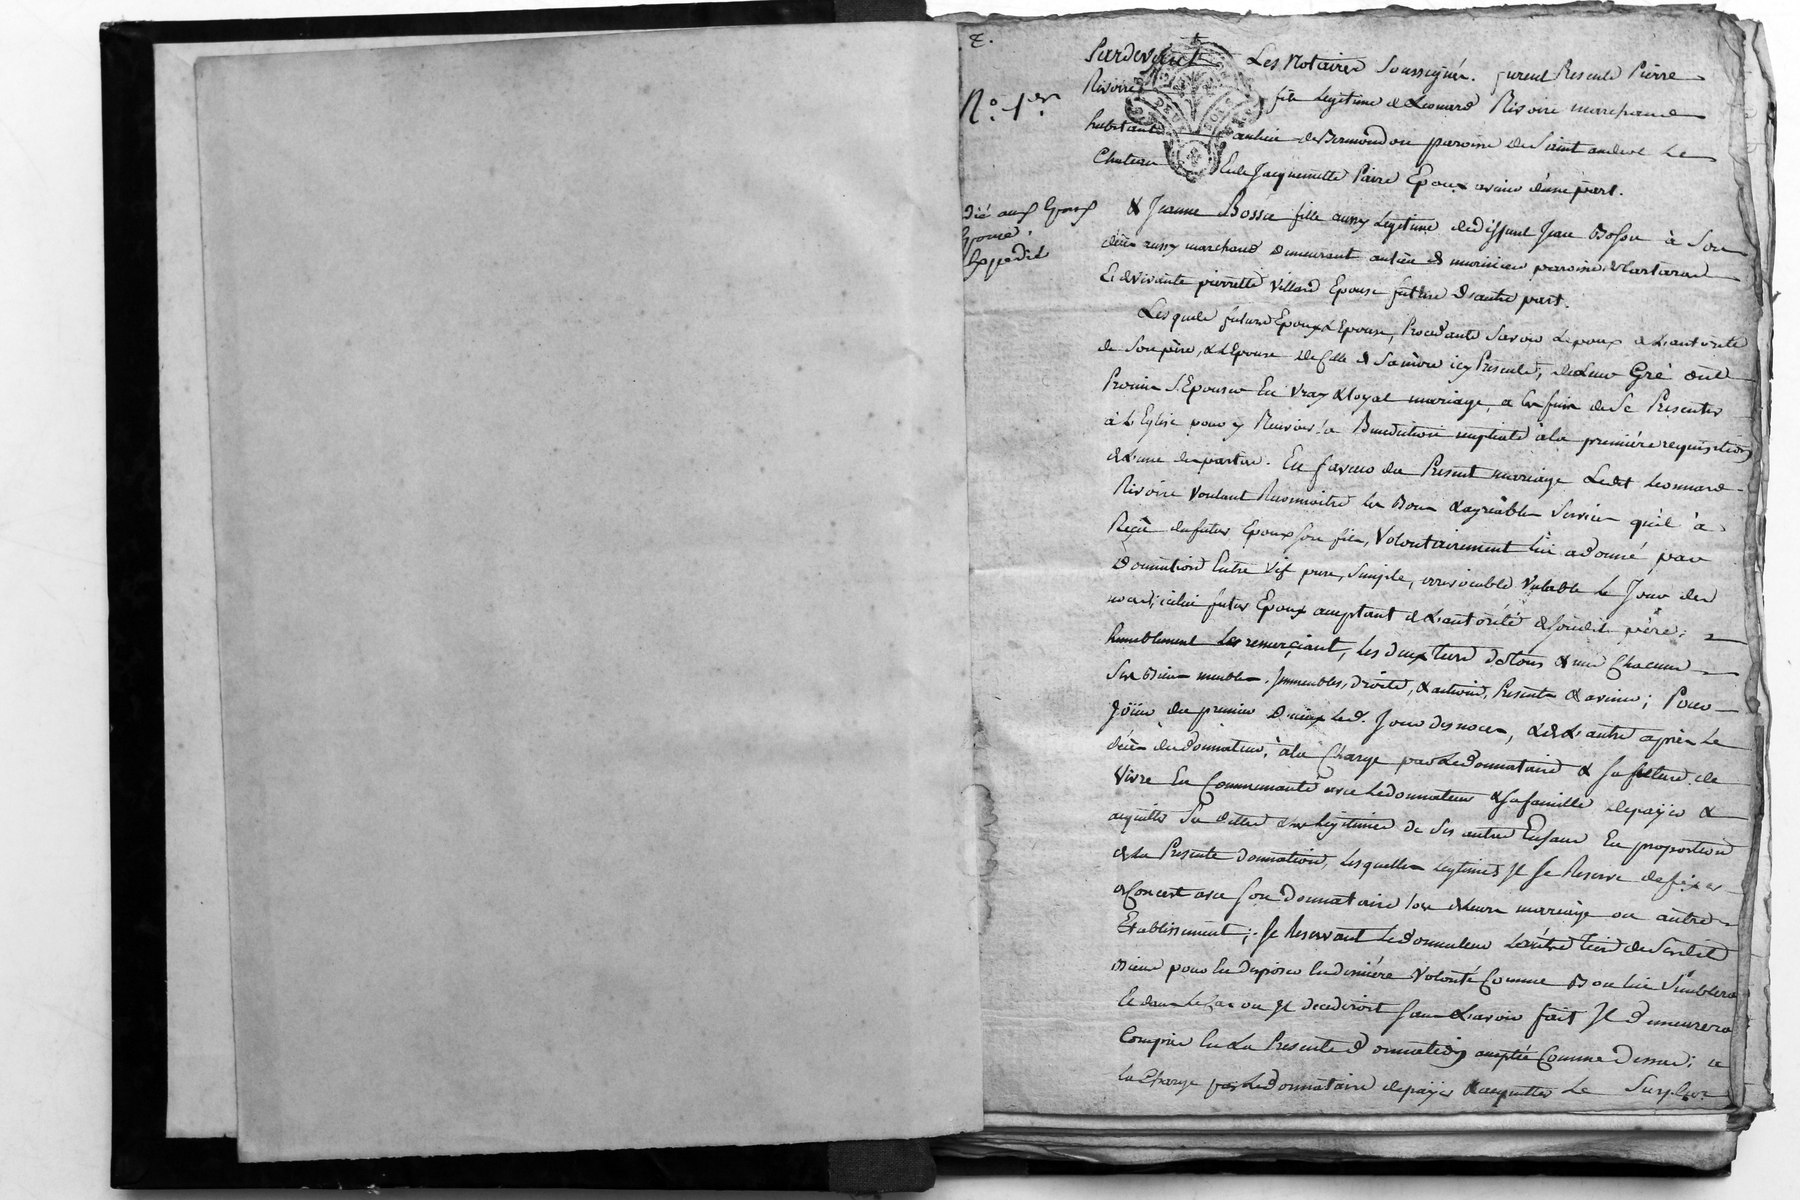 N.º 1.er
expedié
Pardevant Les Notaires Soussignés. furent Presents Pierre
Rivoire fils Legitime de Leonard Rivoire marchand
habitants au lieu de paroisse de Saint andeol Le
Chateau Et de Jacquemette Epoux avenir d'une part.
& Jeanne Bossu fille aussy Legitime de deffunt Jean Bossu à Son
décès aussy marchand demeurant au lieu de paroisse de
Et de vivante pierrette Villard Epouse future d'autre part.
Lesquels futurs Epoux & Epouse, Procedants Savoir L'epoux de L'autorité
de Son père, & L'Epouse de Celle de Sa mère icy Presents, de Leur Gré ont
Promis S'Epouser En Vray & loyal mariage, a les fins de Se Presenter
à L'Eglise pour y Recevoir la Benediction nuptiale à la première requisition
de L'une des parties. En faveur du Present mariage Ledit Leonard
Rivoire Voulant Reconnoitre les Bons & agréables Services qu'il à
Reçû du futur Epoux Son fils, Volontairement lui a donné par
Donnation Entre Vifs pure, Simple, irrevocable Valable le Jour des
noces, icelui futur Epoux acceptant de L'autorité de Sondit père;
humblement Le remerçiant, Les deux tiers de tous & uns Chacuns
Ses Biens meubles, Immeubles, droits, & actions, Presents & avenir; Pour
Joüir du premier dixieux Led. Jour des noces, & de L'autre après Le
décès du donnateur, à la Charge par Le donnataire & Sa future de
Vivre En Communauté avec Le donnateur & Sa famille de payer &
acquitter Ses dettes & les Legitimes de Ses autres Enfans En proportion
de La Presente donnation, Lesquelles Legitimes Il Se Reserve de fixer
de Concert avec Son donnataire lors de Leurs mariage ou autre
Etablissement; Se Reservant Le donnateur L'autre tiers de Sesdits
Biens pour En disposer En dernière Volonté Comme Bon lui Semblera
Et dans Le Cas ou Il decederoit Sans L'avoir fait Il demeurera
Compris En La Presente donnation acceptée Comme dessus; a
la Charge par Le donnataire de payer & acquitter Le Surplus